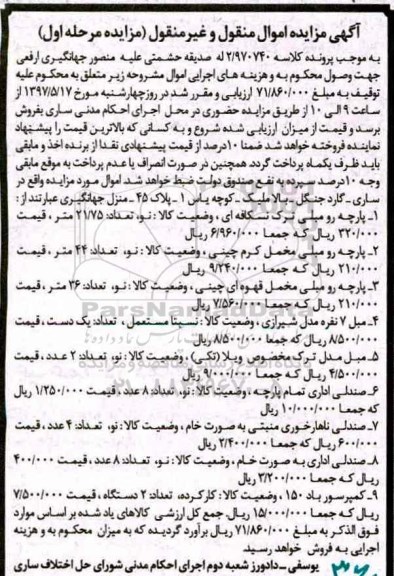 آگهی مزایده اموال منقول و غیرمنقول (مزایده مرحله اول)
به موجب پرونده کلاسه ۲/۹۷۰۷۴۰ له صدیقه حشمتی علیه منصور جهانگیری ارفعی
جهت وصول محکوم به و هزینه های اجرایی اموال مشروحه زیر متعلق به محکوم علیه
توقیف به مبلغ ۷۱/۸۶۰/۰۰۰ ارزیابی و مقرر شد در روز چهارشنبه مورخ ۱۳۹۷/۵/۱۷ از
ساعت ۹ الی ۱۰ از طریق مزایده حضوری در محل اجرای احکام مدنی ساری بفروش
برسد و قیمت از میزان ارزیابی شده شروع و به کسانی که بالاترین قیمت را پیشنهاد
نماینده فروخته خواهد شد ضمنا ۱۰درصد از قیمت پیشنهادی نقدا از برنده اخذ و مابقی
باید ظرف یکماه پرداخت گردد. همچنین در صورت انصراف یا عدم پرداخت به موقع مابقی
وجه ۱۰درصد سپرده به نفع صندوق دولت ضبط خواهد شد. اموال مورد مزایده واقع در
ساری - گارد جنگل - بالا ملیک - کوچه یاس ۱ - پلاک ۴۵ - منزل جهانگیری عبارتند از :
۱ـ پارچه رو مبلی ترک نسکافه ای ، وضعیت کالا : نو، تعداد: ۲۱/۷۵ متر ، قیمت
۳۲۰/۰۰۰ ریال که جمعا ۶/۹۶۰/۰۰۰ ریال
۲ـ پارچه رو مبلی مخمل کرم چینی ، وضعیت کالا : نو، تعداد: ۴۴ متر ، قیمت
۲۱۰/۰۰۰ ریال که جمعا ۹/۲۴۰/۰۰۰ ریال
۳ـ پارچه رو مبلی مخمل قهوه ای چینی ، وضعیت کالا : نو، تعداد: ۳۶ متر ، قیمت
۲۱۰/۰۰۰ ریال که جمعا ۷/۵۶۰/۰۰۰ ریال
۴ـ مبل ۷ نفره مدل شیرازی ، وضعیت کالا : نسبتا مستعمل ، تعداد: یک دست ، قیمت
۸/۵۰۰/۰۰۰ ریال که جمعا ۸/۵۰۰/۰۰۰ ریال
۵ـ مبل مدل ترک مخصوص ویلا (تکی) ، وضعیت کالا : نو، تعداد: ۲ عدد ، قیمت
۴/۵۰۰/۰۰۰ ریال که جمعا ۹/۰۰۰/۰۰۰ ریال
۶ـ صندلی اداری تمام پارچه ، وضعیت کالا : نو، تعداد: ۸ عدد ، قیمت ۱/۲۵۰/۰۰۰ ریال
که جمعا ۱۰/۰۰۰/۰۰۰ ریال
۷ـ صندلی ناهارخوری منبتی به صورت خام ، وضعیت کالا : نو، تعداد: ۴ عدد ، قیمت
۶۰۰/۰۰۰ ریال که جمعا ۲/۴۰۰/۰۰۰ ریال
۸ـ صندلی اداری به صورت خام ، وضعیت کالا : نو، تعداد: ۸ عدد ، قیمت ۴۰۰/۰۰۰
ریال که جمعا ۳/۲۰۰/۰۰۰ ریال
۹ـ کمپرسور باد ۱۵۰ ، وضعیت کالا : کارکرده، تعداد: ۲ دستگاه ، قیمت ۷/۵۰۰/۰۰۰
ریال که جمعا ۱۵/۰۰۰/۰۰۰ ریال. جمع کل ارزشی کالاهای یاد شده بر اساس موارد
فوق الذکر به مبلغ ۷۱/۸۶۰/۰۰۰ ریال برآورد گردیده که به میزان محکوم به و هزینه
اجرایی به فروش خواهد رسید.
یوسفی - دادورز شعبه دوم اجرای احکام مدنی شورای حل اختلاف ساری
ParsNamadData